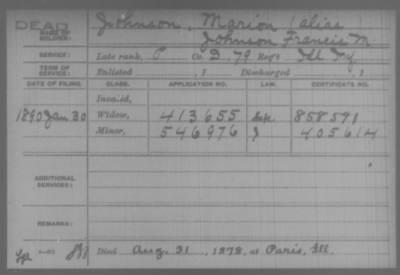 DEAD Johnson, Marion (alias)
NAME OF SOLDIER: Johnson Francis M
SERVICE: Late rank, P Co. D, 79 Reg't Ill Inf
TERM OF SERVICE: Enlisted , 1 Discharged , 1
DATE OF FILING. CLASS. APPLICATION NO. LAW. CERTIFICATE NO.
Invalid,
1890 Jan 30 Widow, 413655 858591
Minor, 546976 405614
ADDITIONAL SERVICES:
REMARKS:
Died Aug. 31, 1878, at Paris, Ill.